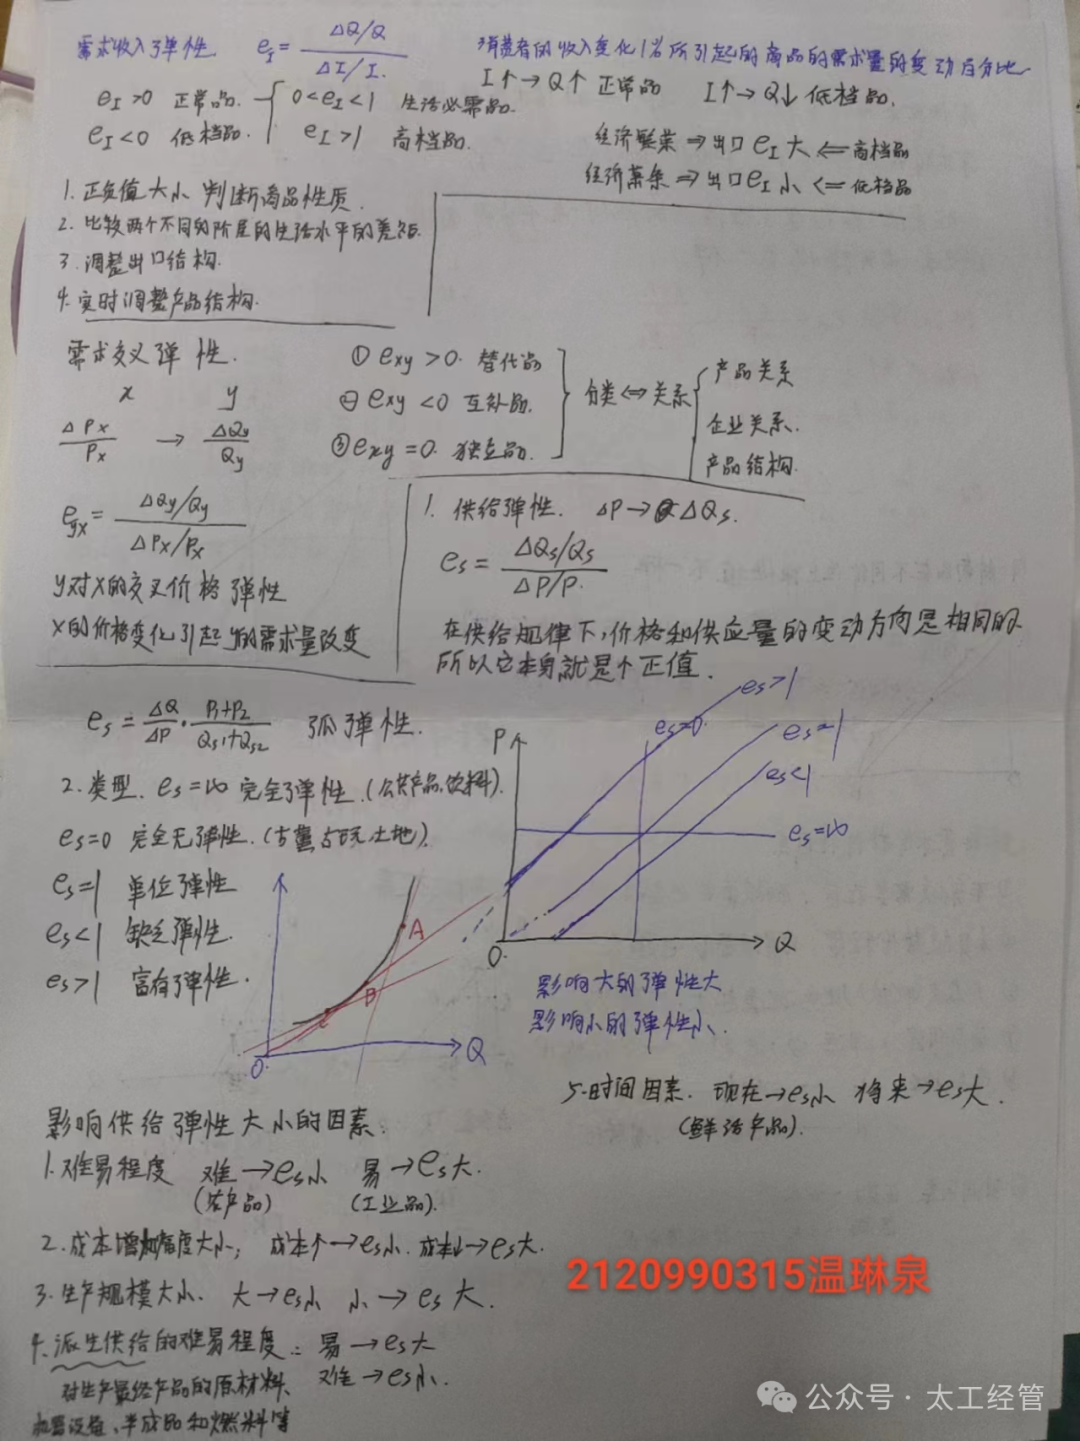 需求收入弹性 e_I = ΔQ/Q / ΔI/I. 消费者的收入变化1%所引起的商品的需求量的变动百分比
I↑→Q↑ 正常品 I↑→Q↓ 低档品.
e_I>0 正常品. { 0<e_I<1 生活必需品.
e_I<0 低档品. e_I>1 高档品.
经济繁荣 ⇒出口e_I大 ⇐高档品
经济萧条 ⇒出口e_I小 ⇐低档品
1. 正负值大小 判断商品性质.
2. 比较两个不同的阶层的生活水平的差距.
3. 调整出口结构.
4. 实时调整产品结构.
需求交叉弹性.
x y
ΔPx/Px → ΔQy/Qy
① e_xy>0. 替代品
② e_xy<0 互补品.
③ e_xy=0. 独立品.
分类⇔关系 { 产品关系
企业关系.
产品结构.
e_yx = ΔQy/Qy / ΔPx/Px
y对x的交叉价格弹性
x的价格变化引起y的需求量改变
1. 供给弹性. ΔP→ΔQs.
es = ΔQs/Qs / ΔP/P.
在供给规律下,价格和供应量的变动方向是相同的
所以它本身就是个正值.
es = ΔQ/ΔP · P1+P2/Qs1+Qs2 弧弹性.
2. 类型. es=∞ 完全弹性.(公共产品,饮料).
es=0 完全无弹性.(古董,土地).
es=1 单位弹性
es<1 缺乏弹性.
es>1 富有弹性.
A
B
C
O
Q
P
es>1
es=0.
es=1
es<1
es=∞
O
Q
影响大的弹性大
影响小的弹性小.
影响供给弹性大小的因素:
1. 难易程度 难→es小 易→es大.
(农产品) (工业品).
2. 成本增加幅度大小; 成本↑→es小. 成本↓→es大.
3. 生产规模大小. 大→es小 小→es大.
4. 派生供给的难易程度: 易→es大
难→es小.
对生产最终产品的原材料、
机器设备、半成品和燃料等
5. 时间因素. 现在→es小 将来→es大.
(鲜活产品).
2120990315温琳泉
公众号 · 太工经管